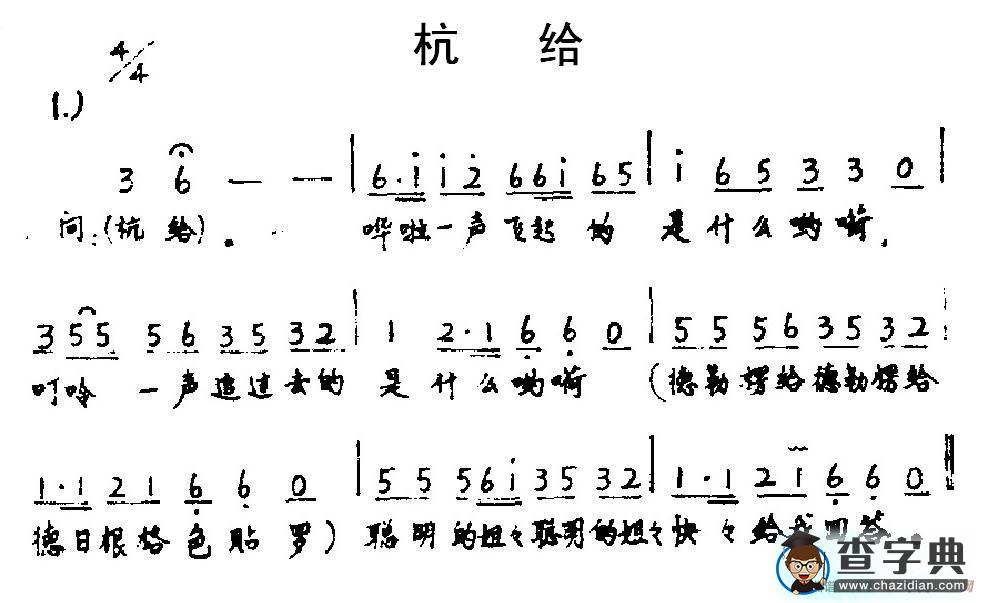 杭 给
4/4
1.)
3 6 — — | 6·i i 2 6 6 i 6 5 | i 6 5 3 3 0 |
问:(杭 给)。 哗啦一声飞起的 是什么哟嗬,
3 5 5 5 6 3 5 3 2 | 1 2·1 6 6 0 | 5 5 5 6 3 5 3 2
叮呤 一声追过去的 是什么哟嗬 (德勒愣给德勒愣给
1·1 2 1 6 6 0 | 5 5 5 6 i 3 5 3 2 | 1·1 2 1 6 6 0
德日根格色贴罗) 聪明的姐々聪明的姐々快々给我回答。
查字典
www.chazidian.com